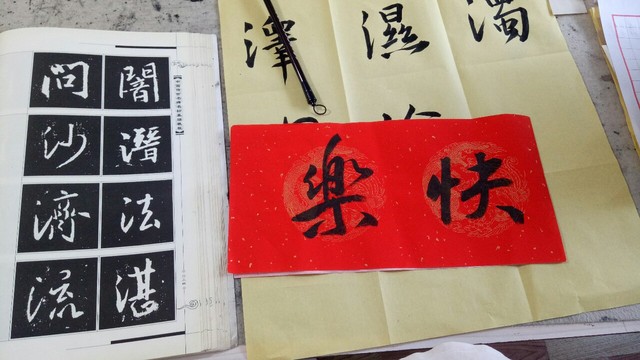 闇潛法湛
問沙濟流
濁
濕
澤
快樂